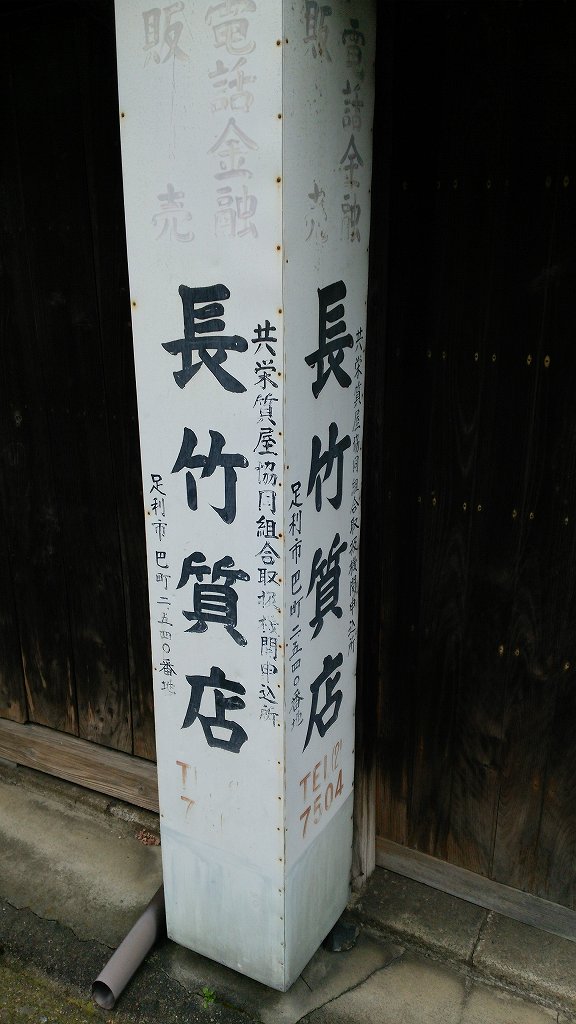 電話金融
販売
共栄質屋協同組合取扱機関申込所
長竹質店
足利市巴町二五四〇番地
電話金融
販売
共栄質屋協同組合取扱機関申込所
長竹質店
足利市巴町二五四〇番地
TEL(2)
7504